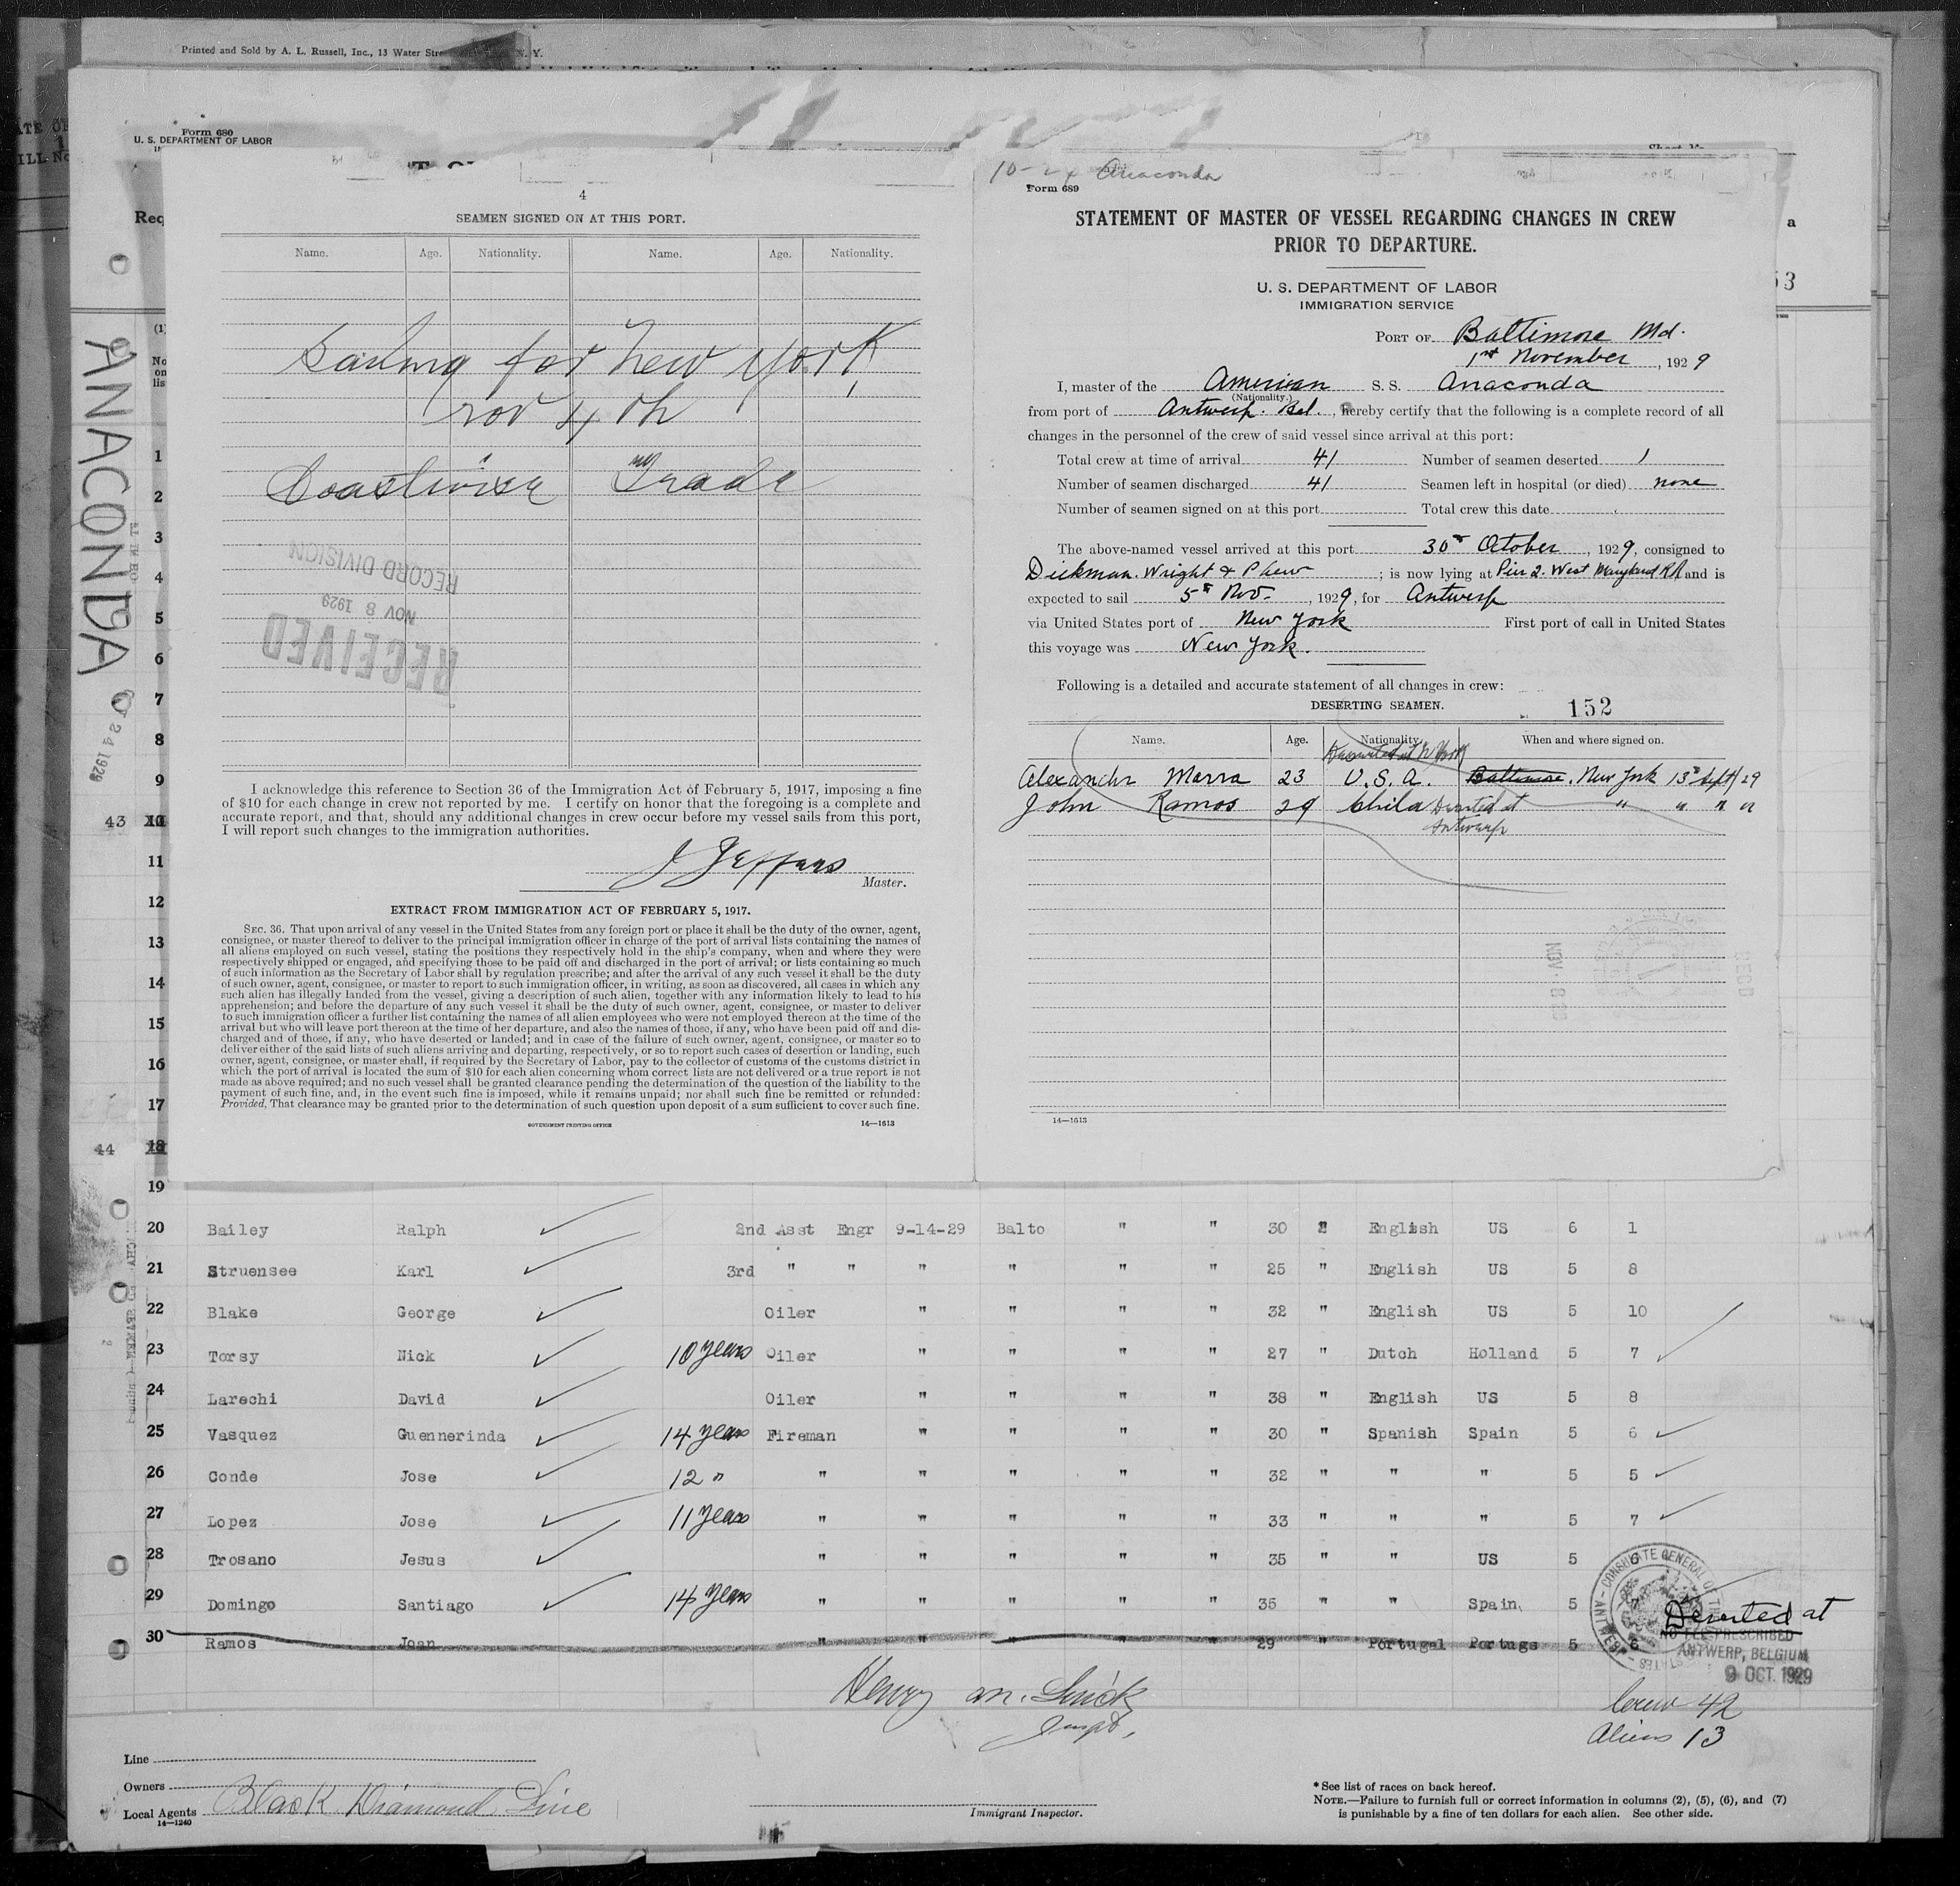 Printed and Sold by A. L. Russell, Inc., 13 Water
N. Y.
Form 680
U. S. DEPARTMENT OF LABOR
Req
4
SEAMEN SIGNED ON AT THIS PORT.
Name. Age. Nationality. Name. Age. Nationality.
Sailing for New York
Nov 4 th
Coastwise Trade
RECORD DIVISION
NOV 8 1929
RECEIVED
I acknowledge this reference to Section 36 of the Immigration Act of February 5, 1917, imposing a fine
of $10 for each change in crew not reported by me. I certify on honor that the foregoing is a complete and
accurate report, and that, should any additional changes in crew occur before my vessel sails from this port,
I will report such changes to the immigration authorities.
J Jeffers
Master.
EXTRACT FROM IMMIGRATION ACT OF FEBRUARY 5, 1917.
SEC. 36. That upon arrival of any vessel in the United States from any foreign port or place it shall be the duty of the owner, agent,
consignee, or master thereof to deliver to the principal immigration officer in charge of the port of arrival lists containing the names of
all aliens employed on such vessel, stating the positions they respectively hold in the ship's company, when and where they were
respectively shipped or engaged, and specifying those to be paid off and discharged in the port of arrival; or lists containing so much
of such information as the Secretary of Labor shall by regulation prescribe; and after the arrival of any such vessel it shall be the duty
of such owner, agent, consignee, or master to report to such immigration officer, in writing, as soon as discovered, all cases in which any
such alien has illegally landed from the vessel, giving a description of such alien, together with any information likely to lead to his
apprehension; and before the departure of any such vessel it shall be the duty of such owner, agent, consignee, or master to deliver
to such immigration officer a further list containing the names of all alien employees who were not employed thereon at the time of the
arrival but who will leave port thereon at the time of her departure, and also the names of those, if any, who have been paid off and dis-
charged and of those, if any, who have deserted or landed; and in case of the failure of such owner, agent, consignee, or master so to
deliver either of the said lists of such aliens arriving and departing, respectively, or so to report such cases of desertion or landing, such
owner, agent, consignee, or master shall, if required by the Secretary of Labor, pay to the collector of customs of the customs district in
which the port of arrival is located the sum of $10 for each alien concerning whom correct lists are not delivered or a true report is not
made as above required; and no such vessel shall be granted clearance pending the determination of the question of the liability to the
payment of such fine, and, in the event such fine is imposed, while it remains unpaid; nor shall such fine be remitted or refunded:
Provided, That clearance may be granted prior to the determination of such question upon deposit of a sum sufficient to cover such fine.
GOVERNMENT PRINTING OFFICE 14—1613
10-24 Anaconda
Form 689
STATEMENT OF MASTER OF VESSEL REGARDING CHANGES IN CREW
PRIOR TO DEPARTURE.
U. S. DEPARTMENT OF LABOR
IMMIGRATION SERVICE
PORT OF Baltimore Md.
1st November, 1929
I, master of the American S. S. Anaconda
(Nationality.)
from port of Antwerp. Bel., hereby certify that the following is a complete record of all
changes in the personnel of the crew of said vessel since arrival at this port:
Total crew at time of arrival 41 Number of seamen deserted 1
Number of seamen discharged 41 Seamen left in hospital (or died) none
Number of seamen signed on at this port Total crew this date
The above-named vessel arrived at this port 30th October, 1929, consigned to
Dickman. Wright & Phew; is now lying at Pier 2. West Maryland RR and is
expected to sail 5th Nov., 1929, for Antwerp
via United States port of New York First port of call in United States
this voyage was New York.
Following is a detailed and accurate statement of all changes in crew:
DESERTING SEAMEN. 152
Name. Age. Nationality. When and where signed on.
Deserted at N York
Alexander Marra 23 U.S.A. Baltimore. New York 13th Sept 29
John Ramos 29 Chile Deserted at Antwerp " " " "
ANACONDA
24 1929
1
2
3
4
5
6
7
8
9
43 10
11
12
13
14
15
16
17
44 18
19
20 Bailey Ralph 2nd Asst Engr 9-14-29 Balto " " 30 " English US 6 1
21 Struensee Karl 3rd " " " " " " 25 " English US 5 8
22 Blake George Oiler " " " " 32 " English US 5 10
23 Torsy Nick 10 years Oiler " " " " 27 " Dutch Holland 5 7
24 Larechi David Oiler " " " " 38 " English US 5 8
25 Vasquez Guennerinda 14 years Fireman " " " " 30 " Spanish Spain 5 6
26 Conde Jose 12 " " " " " " 32 " " " 5 5
27 Lopez Jose 11 years " " " " " 33 " " " 5 7
28 Trosano Jesus " " " " " 35 " " US 5 6
29 Domingo Santiago 14 years " " " " " 35 " " Spain 5
30 Ramos Joan " " " " " 29 " Portugal Portugs 5
CONSULATE GENERAL OF THE
ANTWERP
Deserted at
NO FEE PRESCRIBED
ANTWERP, BELGIUM
9 OCT. 1929
Henry M.
Inspt.
Crew 42
Aliens 13
Line
Owners
Local Agents Black Diamond Line
14—1240
Immigrant Inspector.
* See list of races on back hereof.
NOTE.—Failure to furnish full or correct information in columns (2), (5), (6), and (7)
is punishable by a fine of ten dollars for each alien. See other side.